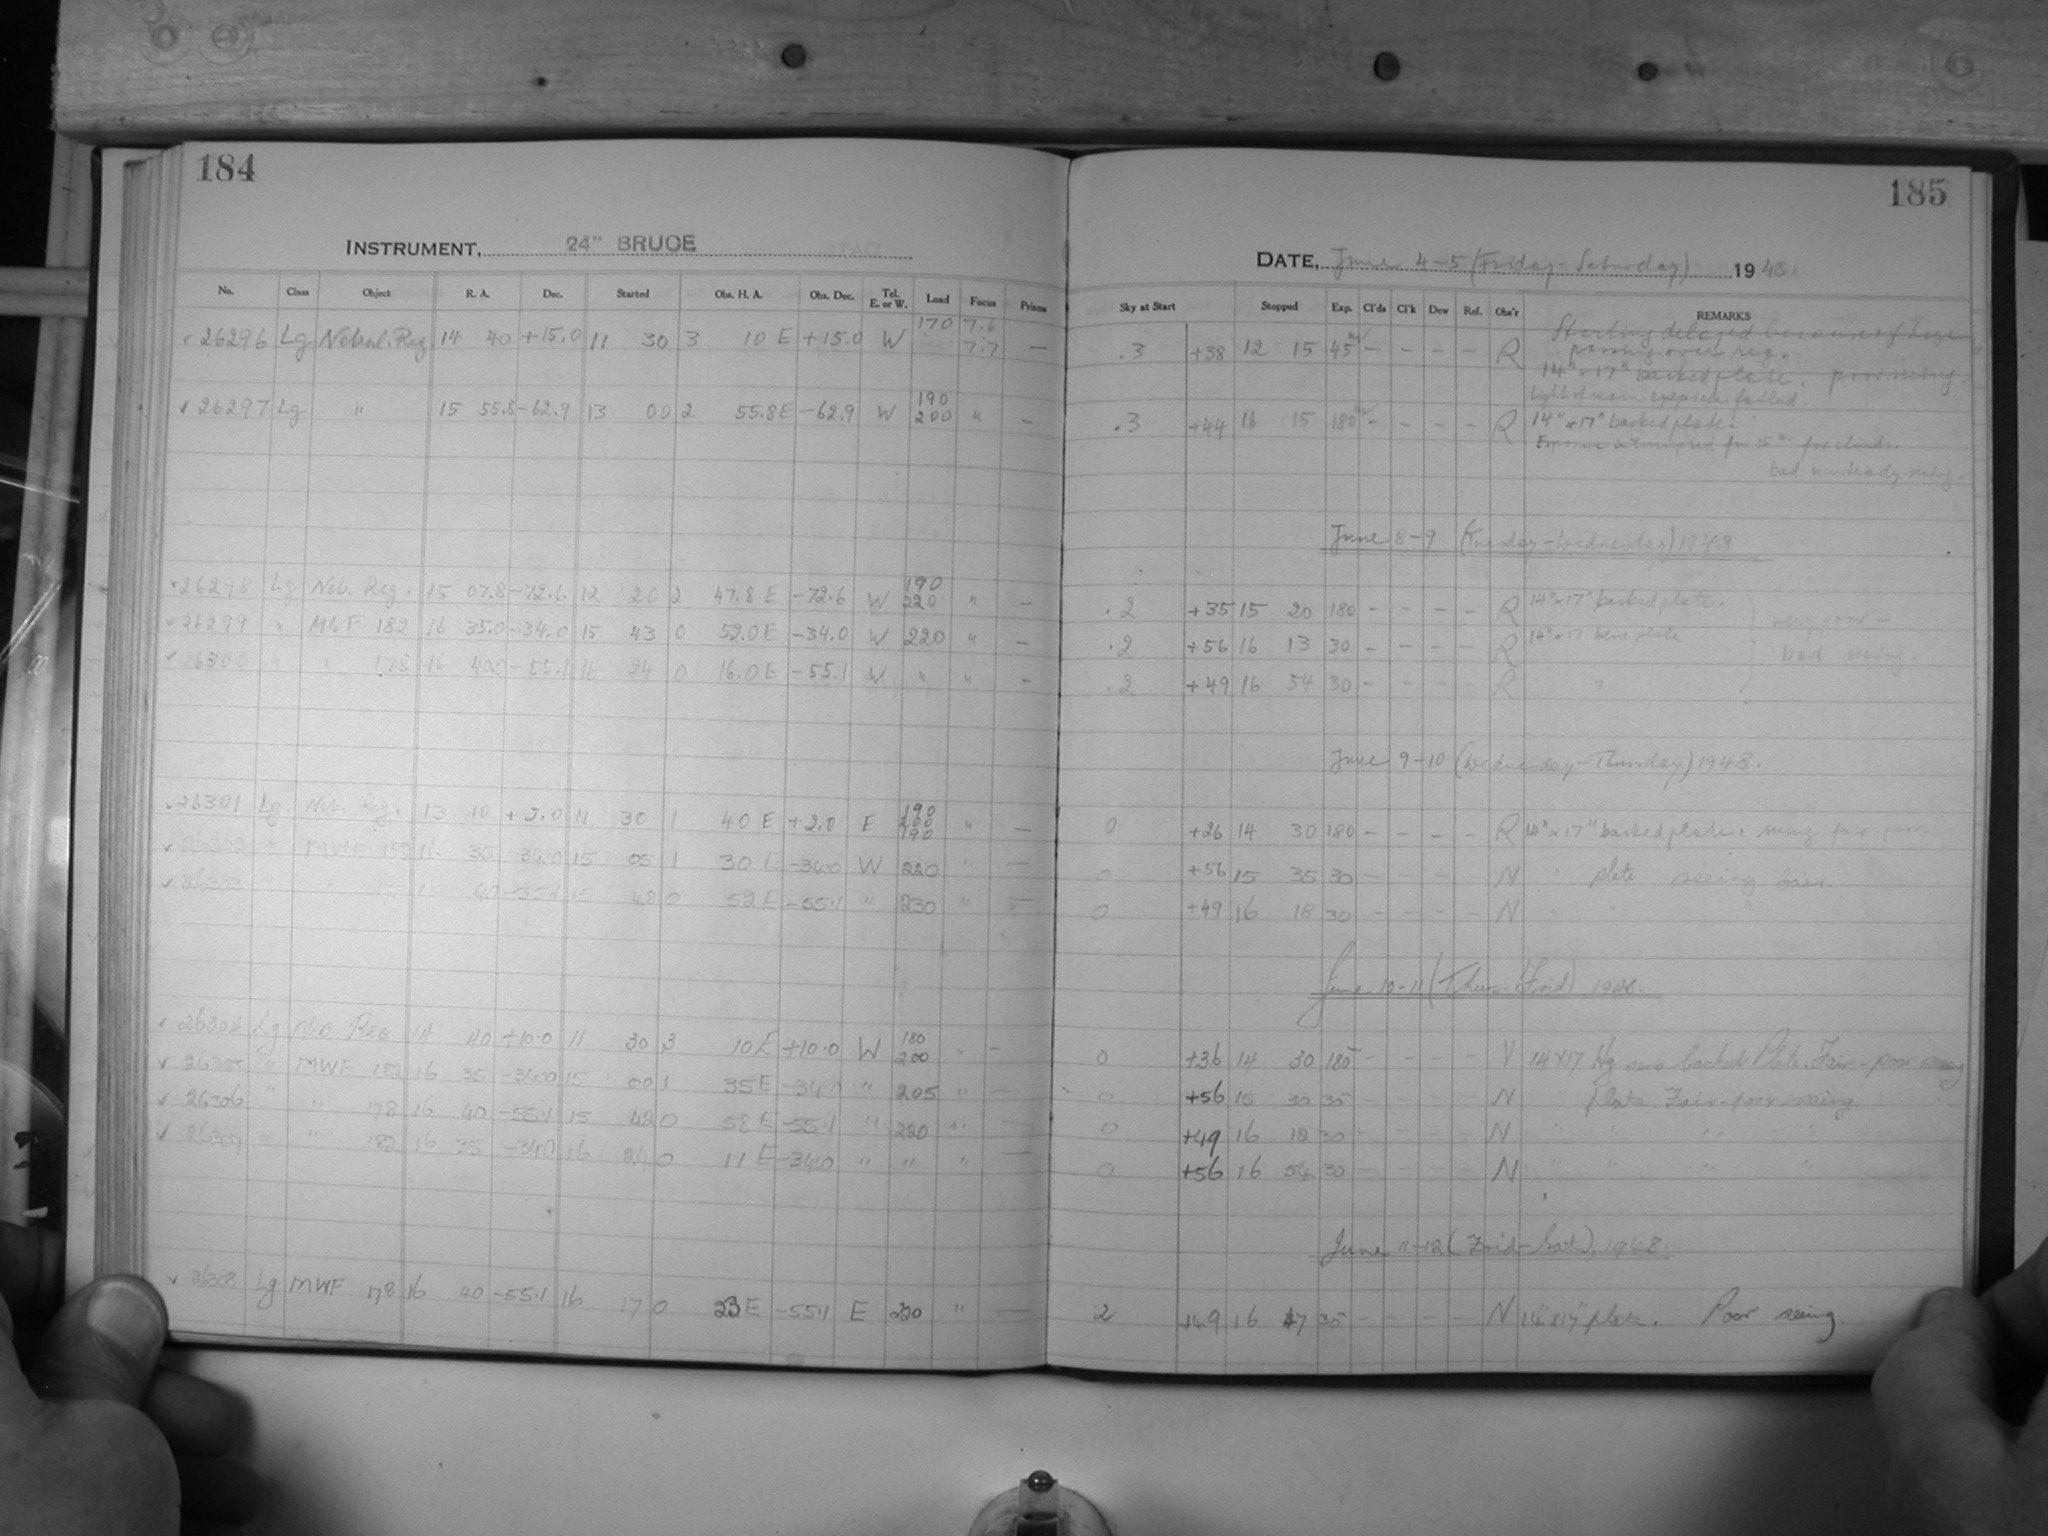 184
INSTRUMENT, 24" BRUCE
No. Class Object R. A. Dec. Started Obs. H. A. Obs. Dec. Tel. E. or W. Load Focus Prisms
26296 Lg Nebul. Reg 14 40 +15.0 11 30 3 10 E +15.0 W 170 7.6 7.7 —
26297 Lg " 15 55.8 -62.9 13 00 2 55.8 E -62.9 W 190 200 " —
26298 Lg Neb. Reg. 15 07.8 -72.6 12 20 2 47.8 E -72.6 W 190 220 " —
26299 " MWF 182 16 35.0 -34.0 15 43 0 52.0 E -34.0 W 220 " —
26300 " " 178 16 40.0 -55.1 16 24 0 16.0 E -55.1 W " " —
26301 Lg Neb. Reg. 13 10 +2.0 11 30 1 40 E +2.0 E 190 200 190 " —
26302 " MWF 16 35 -34.0 15 05 1 30 E -34.0 W 220 " —
26303 " " 40 -55.1 15 48 0 52 E -55.1 " 230 " —
26304 Lg Neb Reg 14 40 +10.0 11 30 3 10 E +10.0 W 180 200 " —
26305 " MWF 182 16 35 -34.0 15 00 1 35 E -34.0 " 205 " —
26306 " " 178 16 40 -55.1 15 42 0 58 E -55.1 " 220 " —
26307 " " 182 16 35 -34.0 16 24 0 11 E -34.0 " " " —
26308 Lg MWF 178 16 40 -55.1 16 17 0 23 E -55.1 E 220 " —
185
DATE, June 4-5 (Friday-Saturday) 1948
Sky at Start Stopped Exp. Cl'ds Cl'k Dew Ref. Obs'r REMARKS
Starting delayed because of haze
passing over reg.
.3 +38 12 15 45 — — — — R 14" x 17" backed plate. poor seeing.
Light of main eyepiece failed.
.3 +44 16 15 180 — — — — R 14" x 17" backed plate.
Exposure interrupted for 15m for clouds.
bad unsteady seeing.
June 8-9 (Tuesday-Wednesday) 1948
.2 +35 15 20 180 — — — — R 14" x 17" backed plate.
.2 +56 16 13 30 — — — — R 14" x 17 blue plate
very poor —
bad seeing.
.2 +49 16 54 30 — — — — R "
June 9-10 (Wednesday-Thursday) 1948.
0 +26 14 30 180 — — — — R 14" x 17" backed plate. seeing fair-poor
0 +56 15 35 30 — — — — N " plate seeing fair.
0 +49 16 18 30 — — — — N " " "
June 10-11 (Thurs-Frid) 1948.
0 +36 14 30 180 — — — — V 14 x 17 Hg backed Plate. Fair-poor seeing
0 +56 15 30 30 — — — — N " plate. Fair-poor seeing.
0 +49 16 12 30 — — — — N " " " "
0 +56 16 54 30 — — — — N " " " "
June 11-12 (Frid-Sat), 1948.
2 +49 16 47 30 — — — — N 14" x 17" plate. Poor seeing.